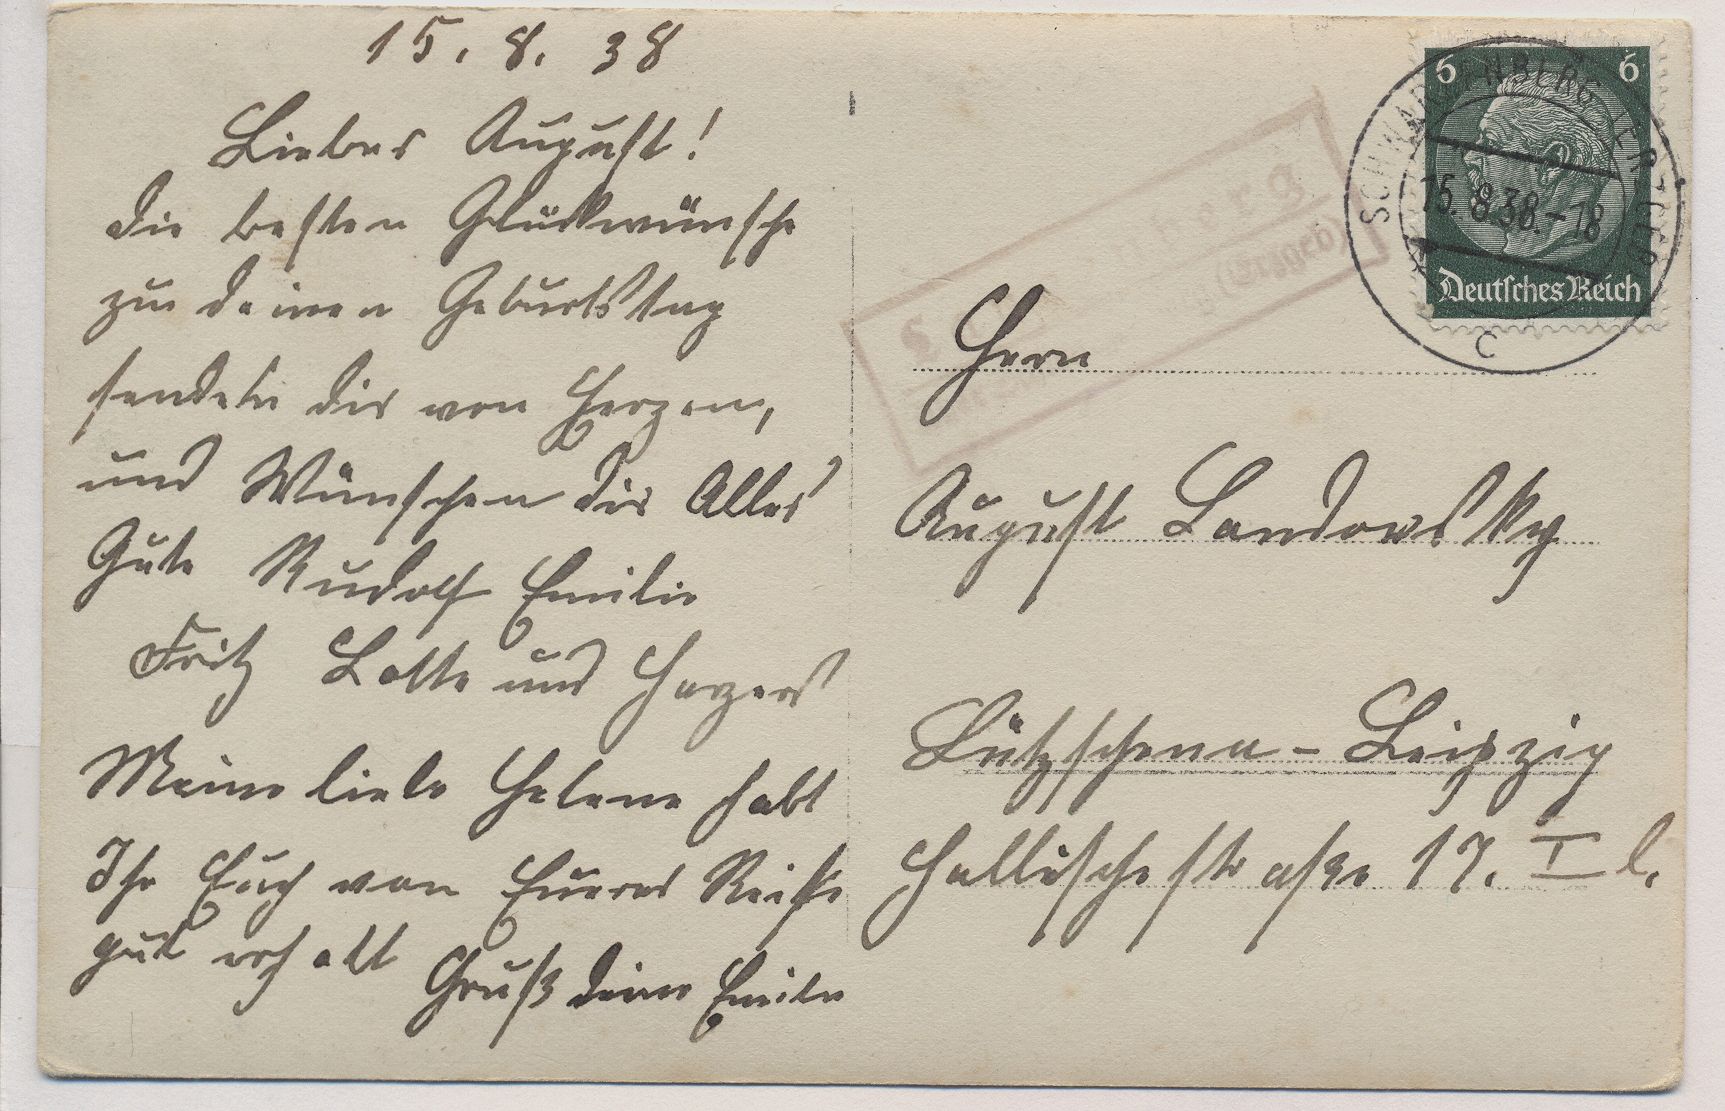 15. 8. 38
Lieber August!
die besten Glückwünsche
zu deinen Geburtstag
senden dir von Herzen,
und Wünschen dir Alles
Gute Rudolf Emilie
Fritz Lotte und
Meine liebe Helene habt
Ihr Euch von Eurer Reise
gut erholt Gruß deine Emilie
6 6
SCHWARZENBERG (ERZGEB)
15.8.38.-18
Deutsches Reich
c
berg
(Erzgeb)
Herrn
August Landowsky
Lützschena - Leipzig
Hallische straße 17. I l.